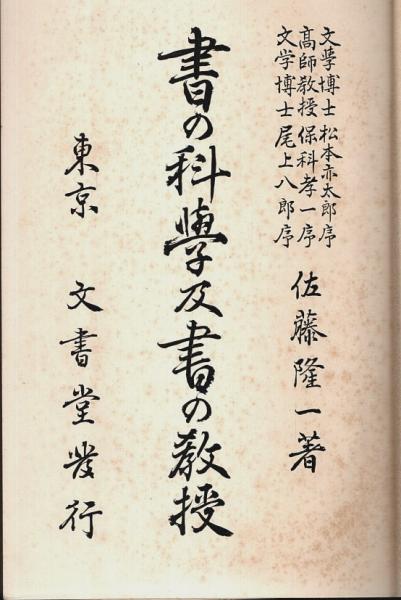 文學博士 松本亦太郎序
高師教授 保科孝一序
文学博士 尾上八郎序
佐藤隆一著
書の科學及書の教授
東京 文書堂發行